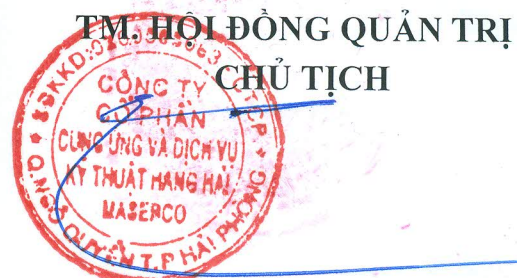 TM. HỘI ĐỒNG QUẢN TRỊ
CHỦ TỊCH
CÔNG TY
CỔ PHẦN
CUNG ỨNG VÀ DỊCH VỤ
KỸ THUẬT HÀNG HẢI
MASERCO
Q.NGÔ QUYỀN T.P HẢI PHÒNG